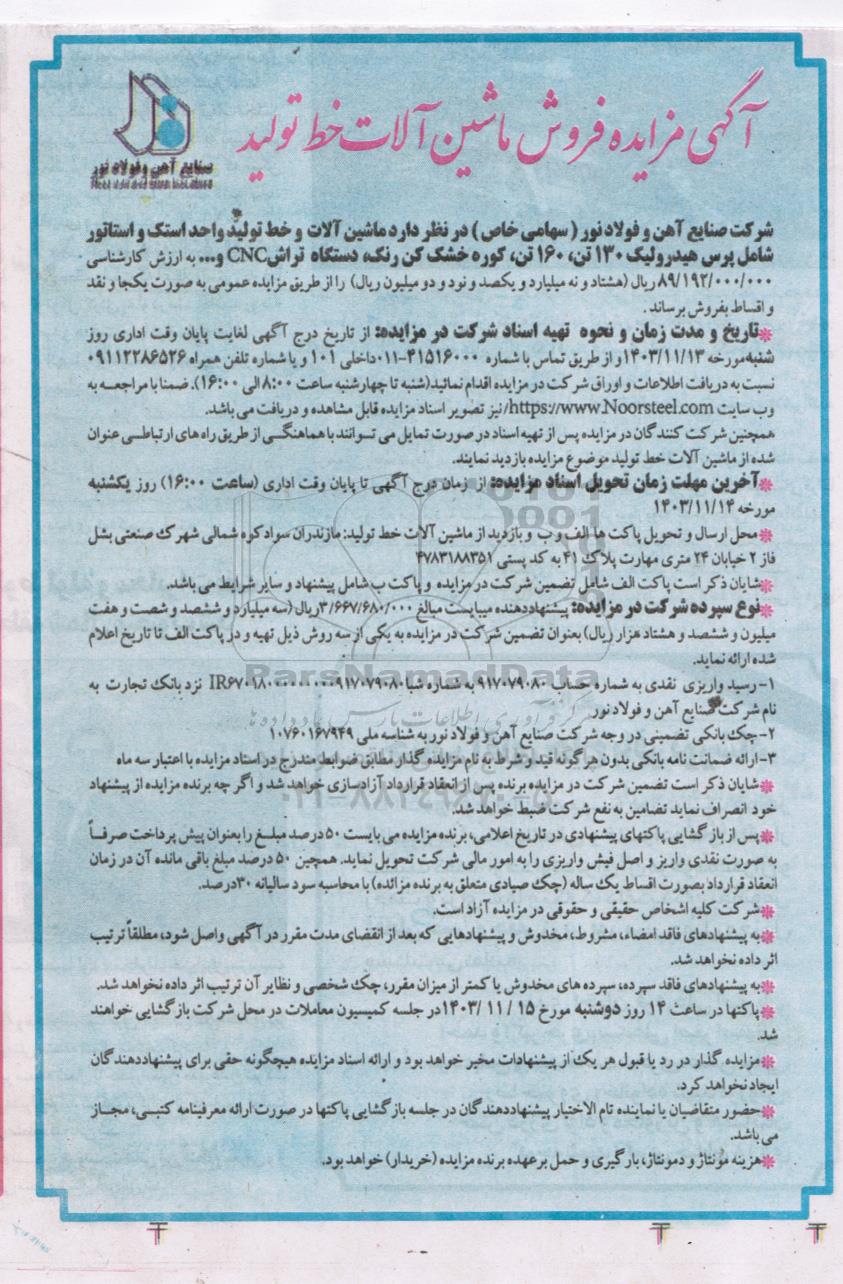 آگهی مزایده فروش ماشین آلات خط تولید
صنایع آهن و فولاد نور
شرکت صنایع آهن و فولاد نور ( سهامی خاص ) در نظر دارد ماشین آلات و خط تولید واحد استک و استاتور
شامل پرس هیدرولیک ۱۳۰ تن، ۱۶۰ تن، کوره خشک کن رنگ، دستگاه تراش CNC و... به ارزش کارشناسی
۸۹/۱۹۲/۰۰۰/۰۰۰ ریال (هشتاد و نه میلیارد و یکصد و نود و دو میلیون ریال) را از طریق مزایده عمومی به صورت یکجا و نقد
و اقساط بفروش برساند .
تاریخ و مدت زمان و نحوه تهیه اسناد شرکت در مزایده: از تاریخ درج آگهی لغایت پایان وقت اداری روز
شنبه مورخه ۱۴۰۳/۱۱/۱۳ و از طریق تماس با شماره ۴۱۵۱۶۰۰۰-۰۱۱ داخلی ۱۰۱ و یا شماره تلفن همراه ۰۹۱۱۲۲۸۶۵۲۶
نسبت به دریافت اطلاعات و اوراق شرکت در مزایده اقدام نمائید(شنبه تا چهارشنبه ساعت ۸:۰۰ الی ۱۶:۰۰). ضمنا با مراجعه به
وب سایت https://www.Noorsteel.com/ نیز تصویر اسناد مزایده قابل مشاهده و دریافت می باشد.
همچنین شرکت کنندگان در مزایده پس از تهیه اسناد در صورت تمایل می توانند با هماهنگی از طریق راه های ارتباطی عنوان
شده از ماشین آلات خط تولید موضوع مزایده بازدید نمایند.
آخرین مهلت زمان تحویل اسناد مزایده: از زمان درج آگهی تا پایان وقت اداری (ساعت ۱۶:۰۰) روز یکشنبه
مورخه ۱۴۰۳/۱۱/۱۴
محل ارسال و تحویل پاکت ها الف و ب و بازدید از ماشین آلات خط تولید: مازندران سوادکوه شمالی شهرک صنعتی بشل
فاز ۲ خیابان ۲۴ متری مهارت پلاک ۴۱ به کد پستی ۴۷۸۳۱۸۸۳۵۱
شایان ذکر است پاکت الف شامل تضمین شرکت در مزایده و پاکت ب شامل پیشنهاد و سایر شرایط می باشد.
نوع سپرده شرکت در مزایده: پیشنهاددهنده میبایست مبالغ ۳/۶۶۷/۶۸۰/۰۰۰ ریال (سه میلیارد و ششصد و شصت و هفت
میلیون و ششصد و هشتاد هزار ریال) بعنوان تضمین شرکت در مزایده به یکی از سه روش ذیل تهیه و در پاکت الف تا تاریخ اعلام
شده ارائه نماید.
۱- رسید واریزی نقدی به شماره حساب ۹۱۷۰۷۹۰۸۰ به شماره شبا IR۶۷۰۱۸۰۰۰۰۰۰۰۰۰۰۹۱۷۰۷۹۰۸۰ نزد بانک تجارت به
نام شرکت صنایع آهن و فولاد نور
۲- چک بانکی تضمینی در وجه شرکت صنایع آهن و فولاد نور به شناسه ملی ۱۰۷۶۰۱۶۷۹۴۹
۳- ارائه ضمانت نامه بانکی بدون هرگونه قید و شرط به نام مزایده گذار مطابق ضوابط مندرج در اسناد مزایده با اعتبار سه ماه
شایان ذکر است تضمین شرکت در مزایده برنده پس از انعقاد قرارداد آزادسازی خواهد شد و اگر چه برنده مزایده از پیشنهاد
خود انصراف نماید تضامین به نفع شرکت ضبط خواهد شد.
پس از باز گشایی پاکتهای پیشنهادی در تاریخ اعلامی، برنده مزایده می بایست ۵۰ درصد مبلغ را بعنوان پیش پرداخت صرفاً
به صورت نقدی واریز و اصل فیش واریزی را به امور مالی شرکت تحویل نماید. همچنین ۵۰ درصد مبلغ باقی مانده آن در زمان
انعقاد قرارداد بصورت اقساط یک ساله (چک صیادی متعلق به برنده مزائده) با محاسبه سود سالیانه ۳۰ درصد.
شرکت کلیه اشخاص حقیقی و حقوقی در مزایده آزاد است.
به پیشنهادهای فاقد امضاء، مشروط، مخدوش و پیشنهادهایی که بعد از انقضای مدت مقرر در آگهی واصل شود، مطلقاً ترتیب
اثر داده نخواهد شد.
به پیشنهادهای فاقد سپرده، سپرده های مخدوش یا کمتر از میزان مقرر، چک شخصی و نظایر آن ترتیب اثر داده نخواهد شد.
پاکتها در ساعت ۱۴ روز دوشنبه مورخ ۱۵ / ۱۱ /۱۴۰۳ در جلسه کمیسیون معاملات در محل شرکت بازگشایی خواهند
شد.
مزایده گذار در رد یا قبول هر یک از پیشنهادات مخیر خواهد بود و ارائه اسناد مزایده هیچگونه حقی برای پیشنهاددهندگان
ایجاد نخواهد کرد.
حضور متقاضیان یا نماینده تام الاختیار پیشنهاددهندگان در جلسه بازگشایی پاکتها در صورت ارائه معرفینامه کتبی، مجاز
می باشد.
هزینه مونتاژ و دمونتاژ، بارگیری و حمل بر عهده برنده مزایده (خریدار) خواهد بود.
ParsNamadData